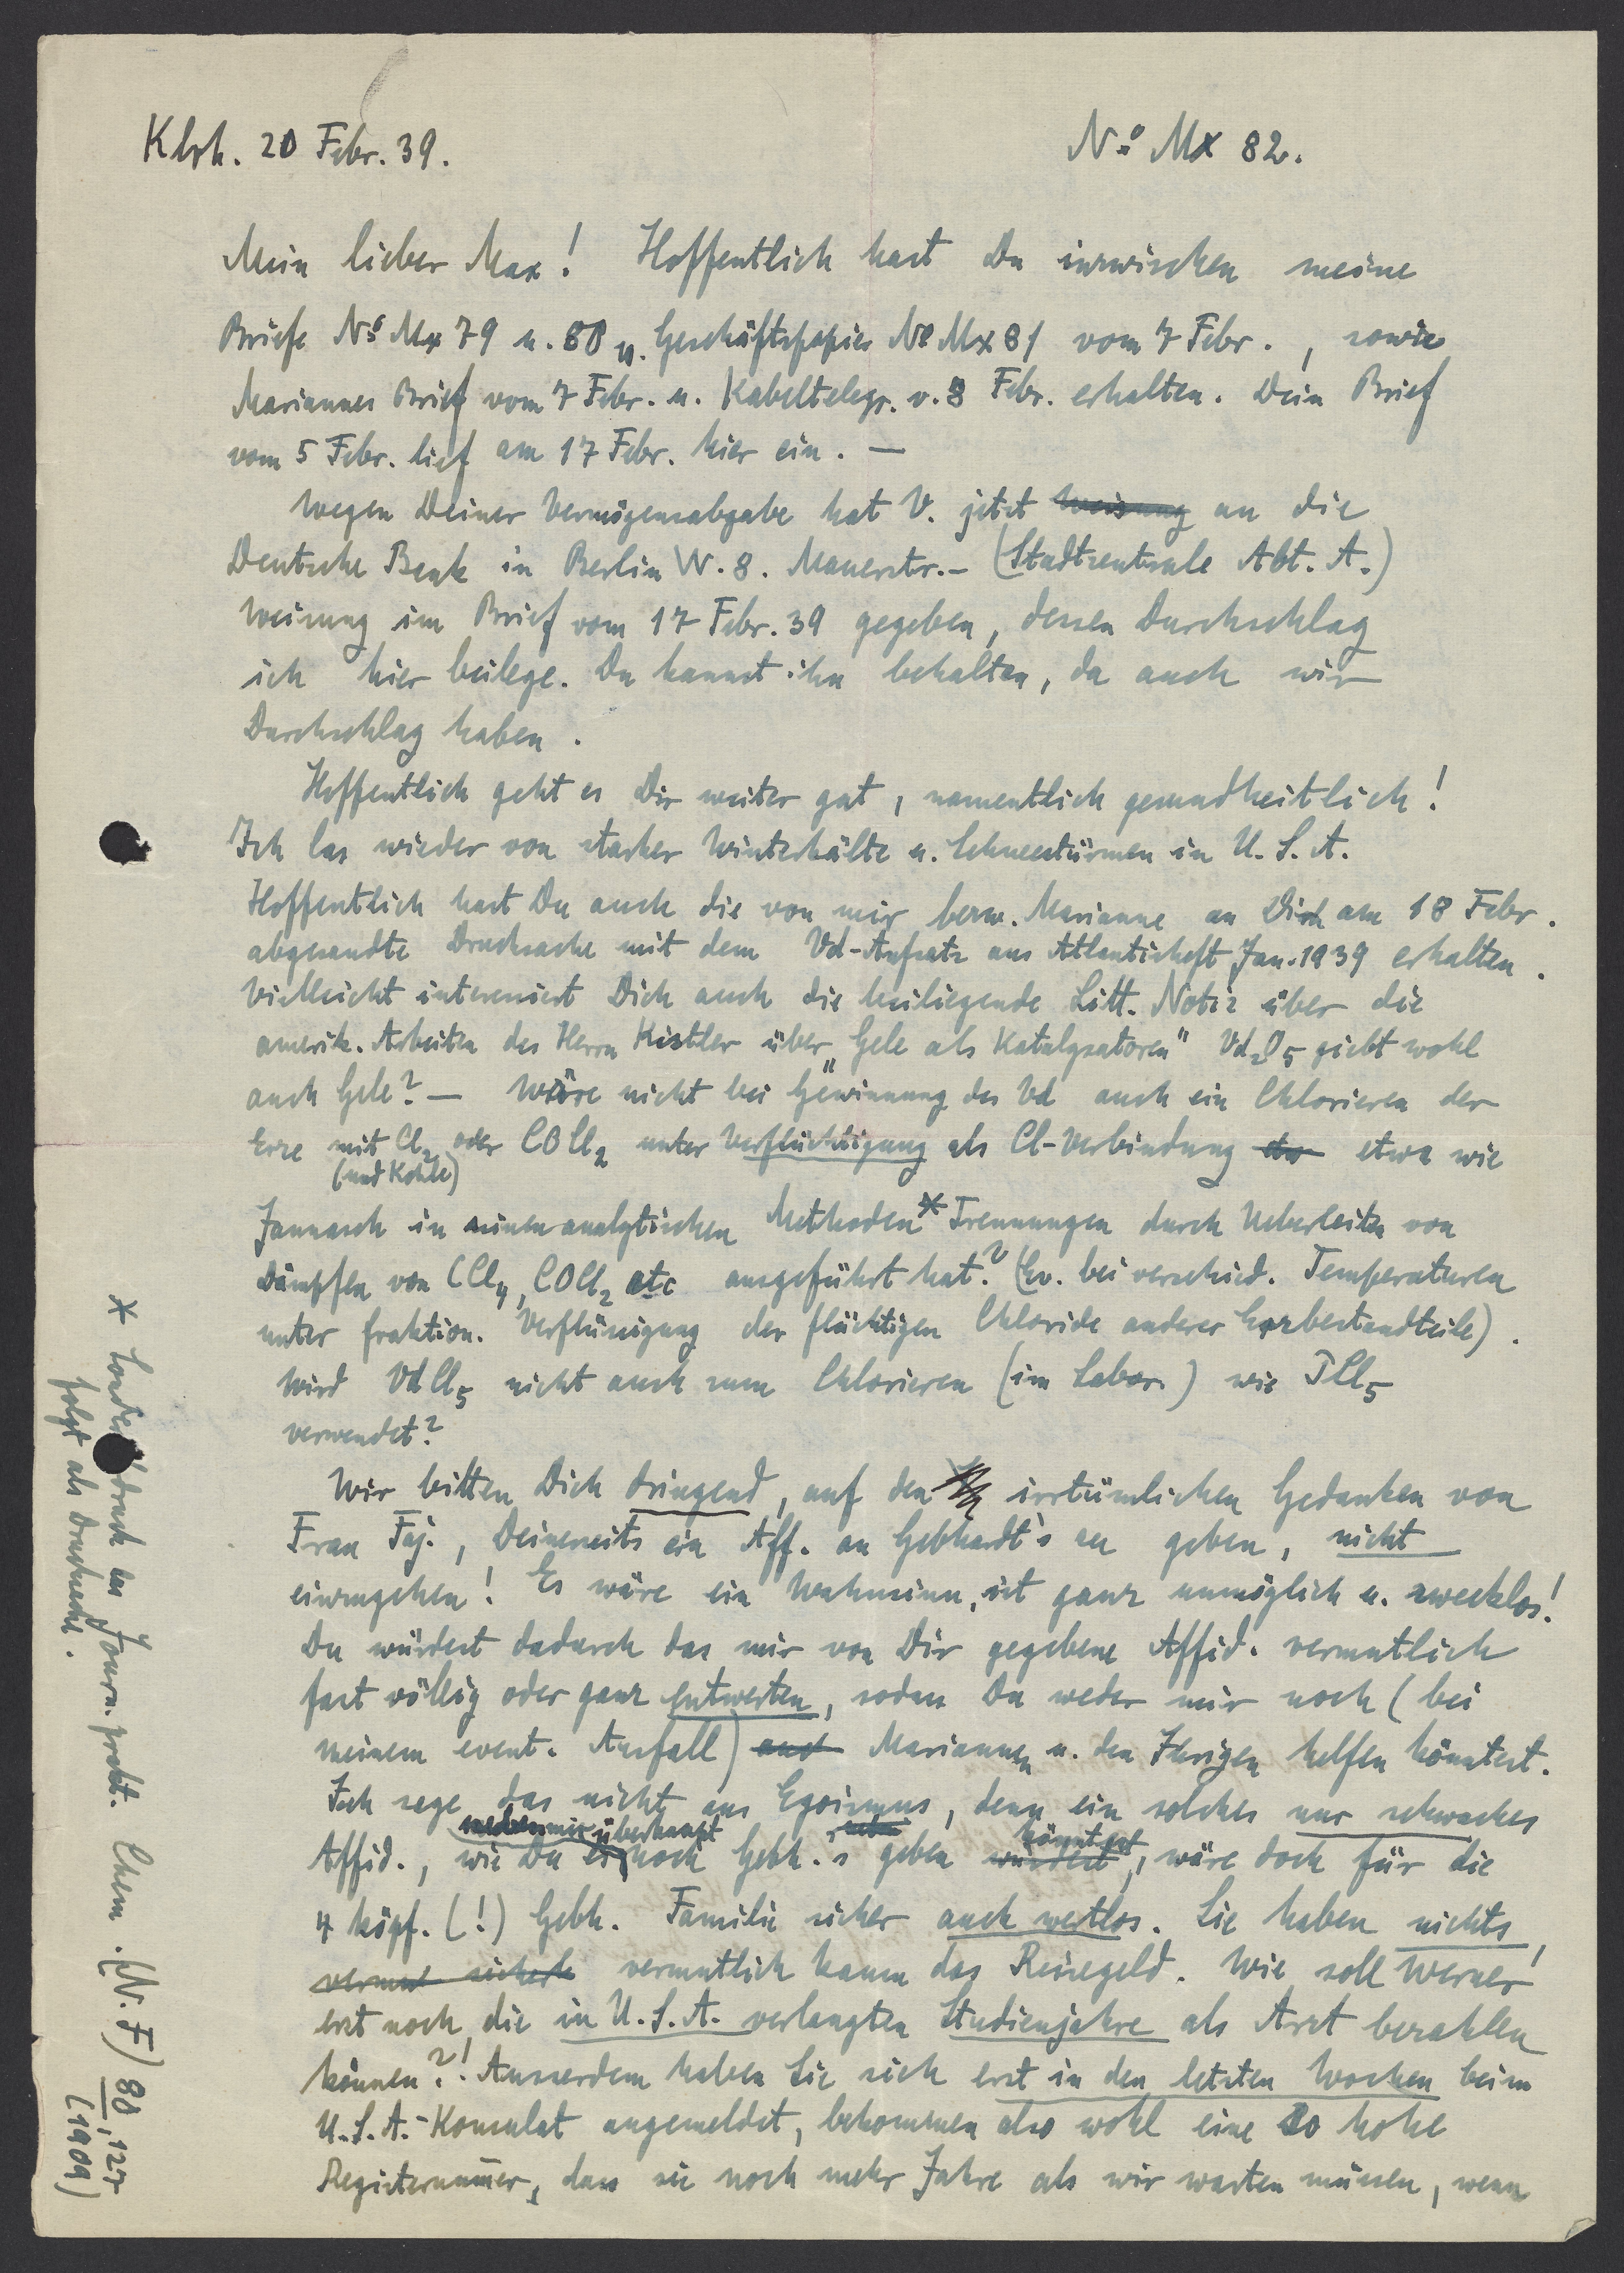 Klrh. 20 Febr. 39.
No Mx 82.
Mein lieber Max! Hoffentlich hast Du inzwischen meine
Briefe No Mx 79 u. 80 u. Geschäftspapier No Mx 81 vom 7 Febr., sowie
Mariannes Brief vom 7 Febr. u. Kabeltelegr. v. 8 Febr. erhalten. Dein Brief
vom 5 Febr. lief am 17 Febr. hier ein. —
Wegen Deiner Vermögensabgabe hat V. jetzt Weisung an die
Deutsche Bank in Berlin W. 8. Mauerstr.- (Stadtzentrale Abt. A.)
Weisung im Brief vom 17 Febr. 39 gegeben, dessen Durchschlag
ich hier beilege. Du kannst ihn behalten, da auch wir
Durchschlag haben.
Hoffentlich geht es Dir weiter gut, namentlich gesundheitlich!
Ich las wieder von starker Winterkälte u. Schneestürmen in U.S.A.
Hoffentlich hast Du auch die von mir bezw. Marianne an Dich am 18 Febr.
abgesandte Drucksache mit dem Vd-Aufsatz aus Atlantisheft Jan. 1939 erhalten.
Vielleicht interessiert Dich auch die beiliegende Litt. Notiz über die
amerik. Arbeiten des Herrn Kistler über „Gele als Katalysatoren" Vd2O5 giebt wohl
auch Gele? — Wäre nicht bei Gewinnung des Vd auch ein Chlorieren der
Erze mit Cl2 oder COCl2 unter Verflüchtigung als Cl-Verbindung etw etwa wie
(und Kohle)
Jannasch in seinen analytischen Methoden* Trennungen durch Ueberleiten von
Dämpfen von CCl4, COCl2 etc ausgeführt hat? (Ev. bei verschied. Temperaturen
unter fraktion. Verflüssigung der flüchtigen Chloride anderer Erzbestandteile).
Wird VdCl5 nicht auch zum Chlorieren (im Labor.) wie PCl5
verwendet?
Wir bitten Dich dringend, auf den irrtümlichen Gedanken von
Frau Faj., Deinerseits ein Aff. an Gebhardt's zu geben, nicht
einzugehen! Es wäre ein Wahnsinn, ist ganz unmöglich u. zwecklos!
Du würdest dadurch das mir von Dir gegebene Affid. vermutlich
fast völlig oder ganz entwerten, sodass Du weder mir noch (bei
meinem event. Ausfall) auch Mariannen u. den Ihrigen helfen könntest.
Ich sage das nicht aus Egoismus, denn ein solches nur schwaches
neben mir überhaupt
könntest
Affid., wie Du es noch Gebh.'s geben würdest, wäre doch für die
4 köpf. (!) Gebh. Familie sicher auch wertlos. Sie haben nichts,
vermut sicher vermutlich kaum das Reisegeld. Wie soll Werner
erst noch die in U.S.A. verlangten Studienjahre als Arzt bezahlen
können?! Ausserdem haben Sie sich erst in den letzten Wochen beim
U.S.A.-Konsulat angemeldet, bekommen also wohl eine so hohe
Registernummer, dass sie noch mehr Jahre als wir warten müssen, wenn
* Sonderdruck im Journ. prakt. Chem. (N. F.) 80, 127
(1909)
folgt als Drucksache.